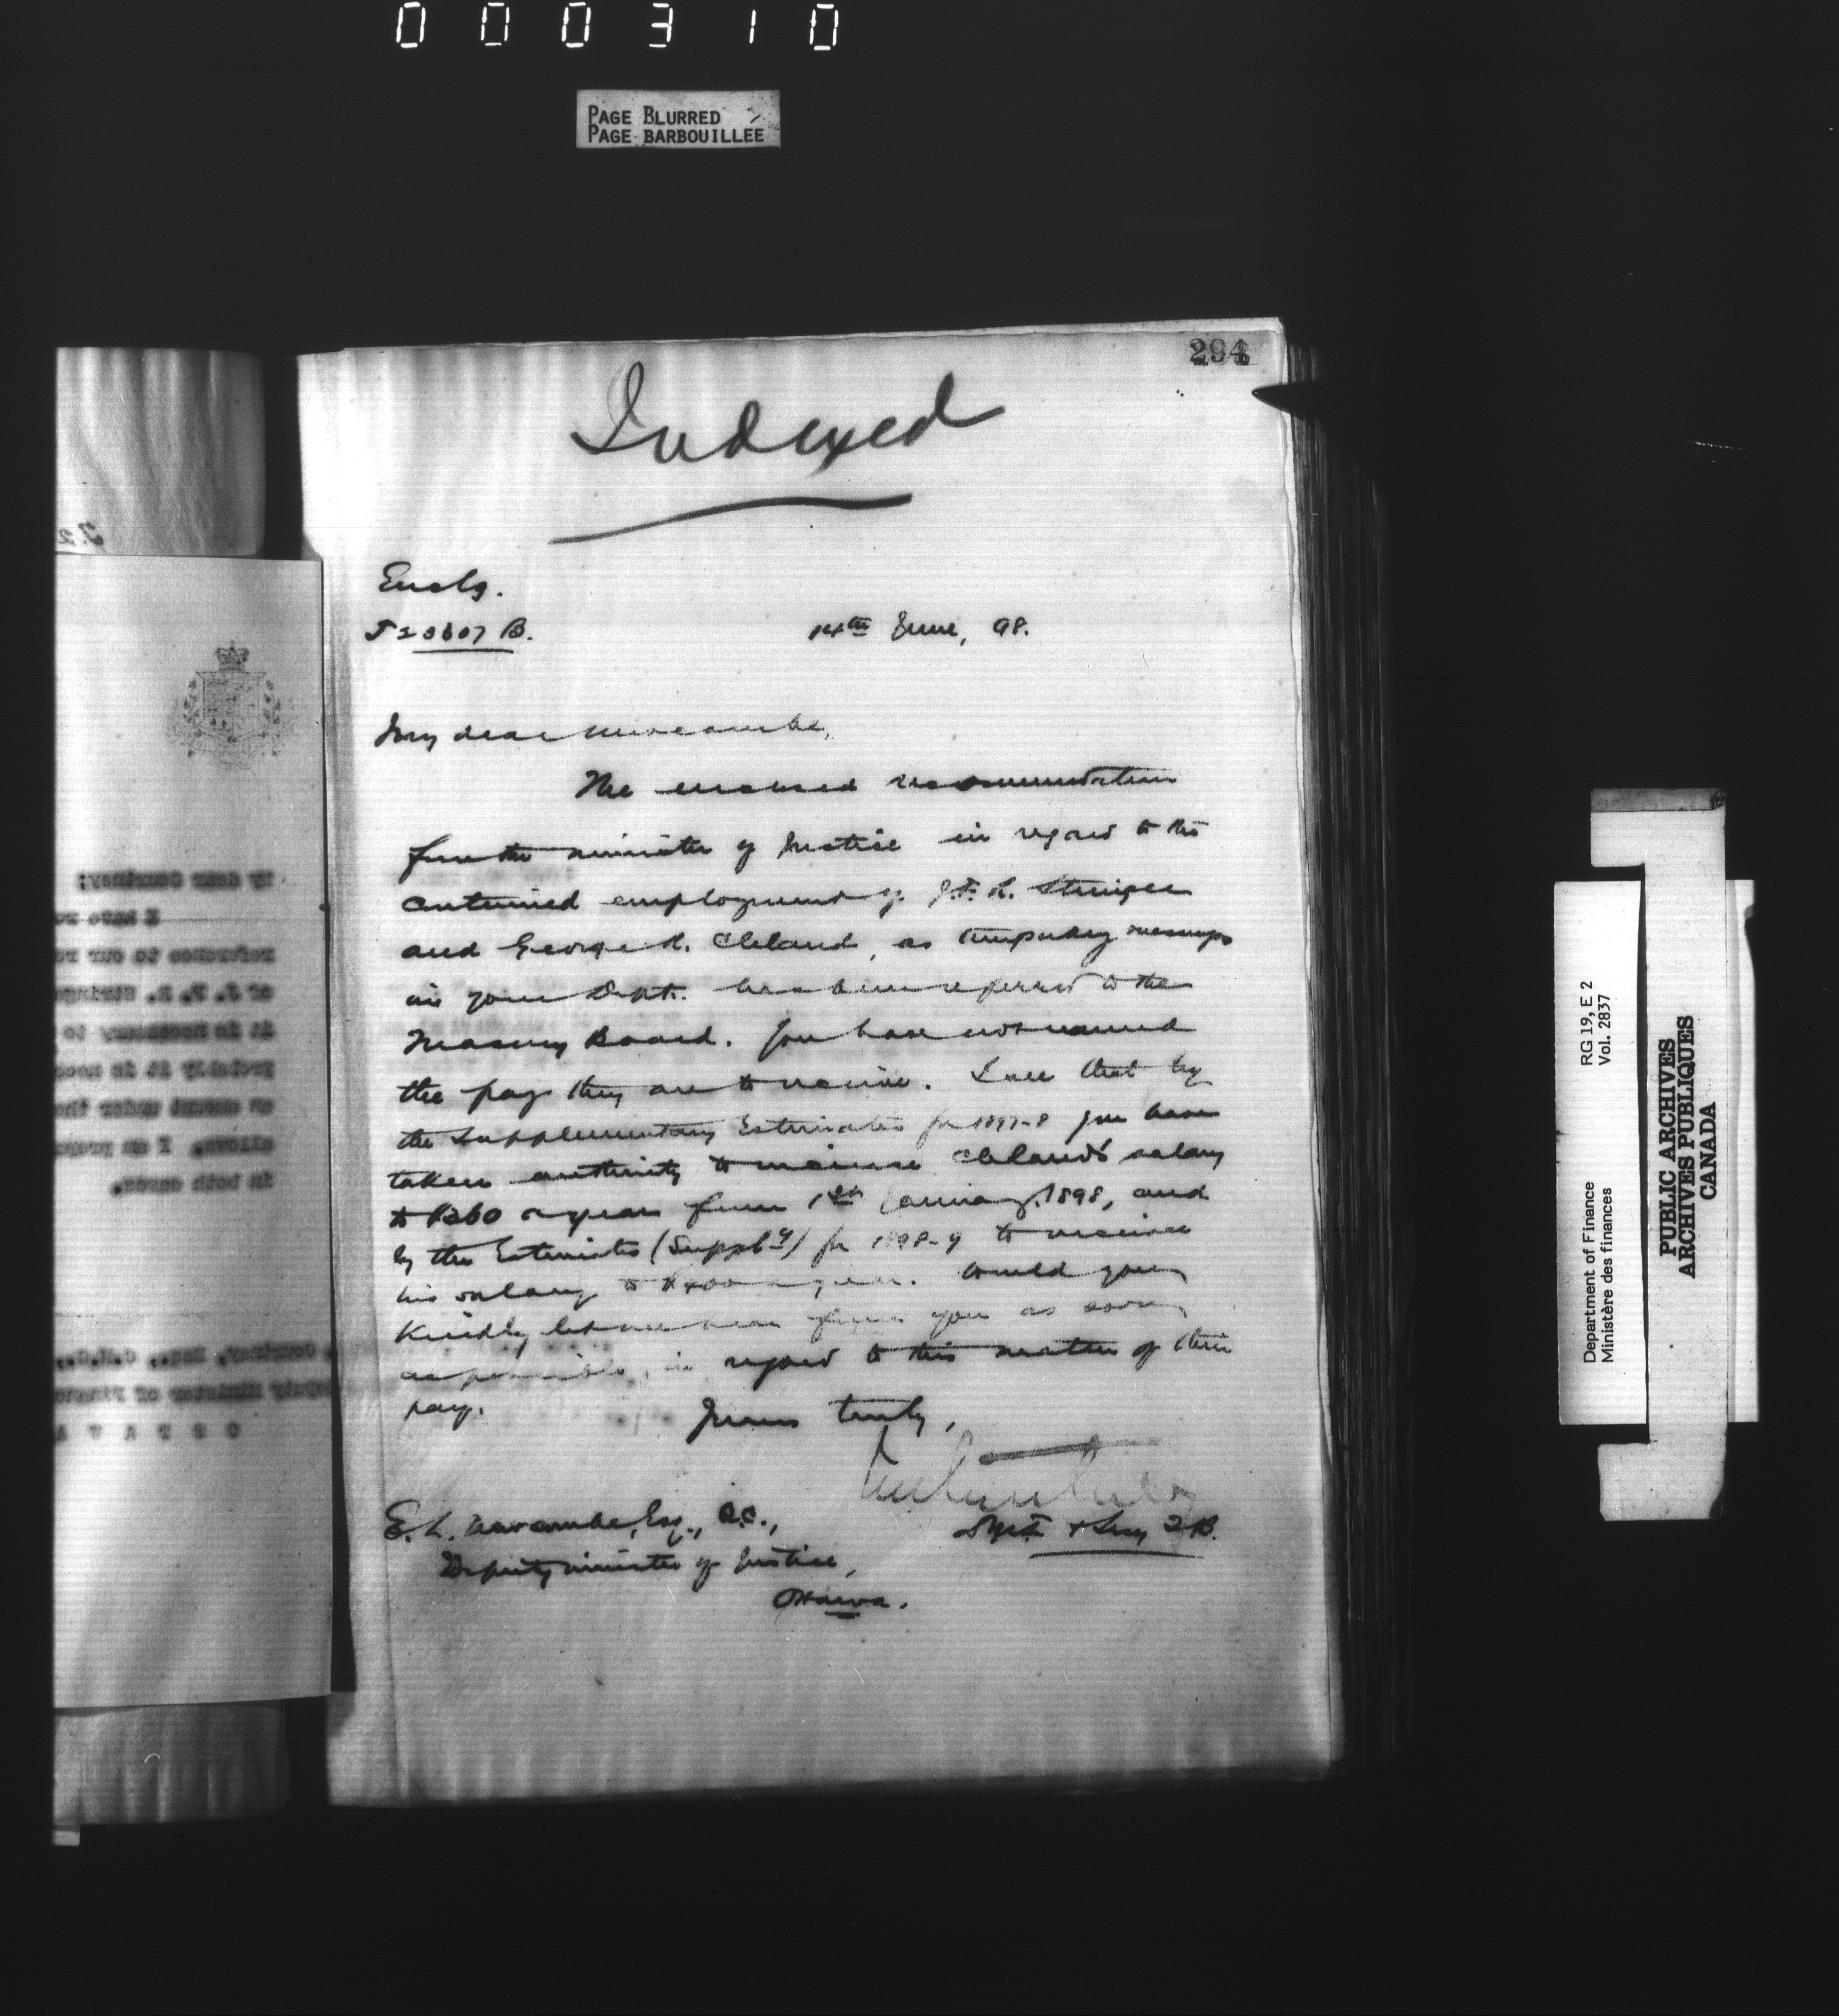 000310
PAGE BLURRED
PAGE BARBOUILLEE
294
Indexed
Encls.
14th June, 98.
My dear Newcombe,
The enclosed recommendation
from the Minister of Justice in regard to the
continued employment of J.F.R. Stringer
and George R. Cleland, as temporary messngrs
in your Dept. has been referred to the
Treasury Board. You have not named
the pay they are to receive. I see that by
the Supplementary Estimates for 1897-8 you have
taken authority to increase Cleland's salary
to $360 a year from 1st January, 1898, and
by the Estimates (Supply) for 1898-9 to increase
his salary to $400 a year. Would you
kindly let me hear from you as soon
as possible, in regard to this matter of their
pay.
Yours truly,
E. L. Newcombe, Esq., Q.C.,
Deputy Minister of Justice,
Ottawa.
My dear Courtney;
I have re
reference to our re
of J. F. R. Stringe
it is necessary to
probably it is nece
an amount under the
allows, I am prepa
in both cases.
Courtney, Esq., C.M.G.,
Deputy Minister of Financ
OTTAWA
Department of Finance RG 19, E 2
Ministère des finances Vol. 2837
PUBLIC ARCHIVES
ARCHIVES PUBLIQUES
CANADA